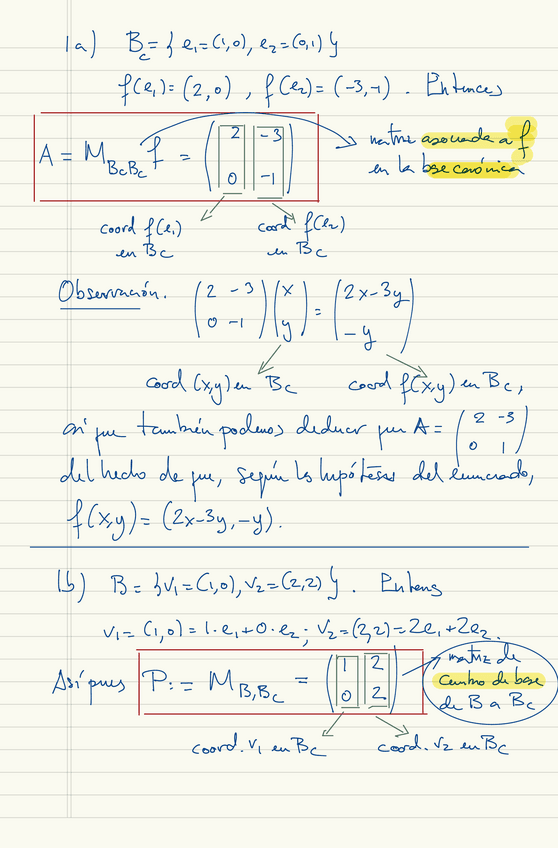 1a) B_C = { e₁=(1,0), e₂=(0,1) }
f(e₁)=(2,0), f(e₂)=(-3,-1). Entonces
A = M_{B_C B_C} f = ( 2 -3 ; 0 -1 ) → matriz asociada a f
en la base canónica
coord f(e₁) en B_C coord f(e₂) en B_C
Observación. ( 2 -3 ; 0 -1 ) ( x ; y ) = ( 2x-3y ; -y )
coord (x,y) en B_C coord f(x,y) en B_C,
así que también podemos deducir que A = ( 2 -3 ; 0 1 )
del hecho de que, según las hipótesis del enunciado,
f(x,y) = (2x-3y, -y).
1b) B = { v₁=(1,0), v₂=(2,2) }. Entonces
v₁=(1,0)=1·e₁+0·e₂; v₂=(2,2)=2e₁+2e₂.
Así pues P := M_{B,B_C} = ( 1 2 ; 0 2 ) → matriz de
cambio de base
de B a B_C
coord. v₁ en B_C coord. v₂ en B_C